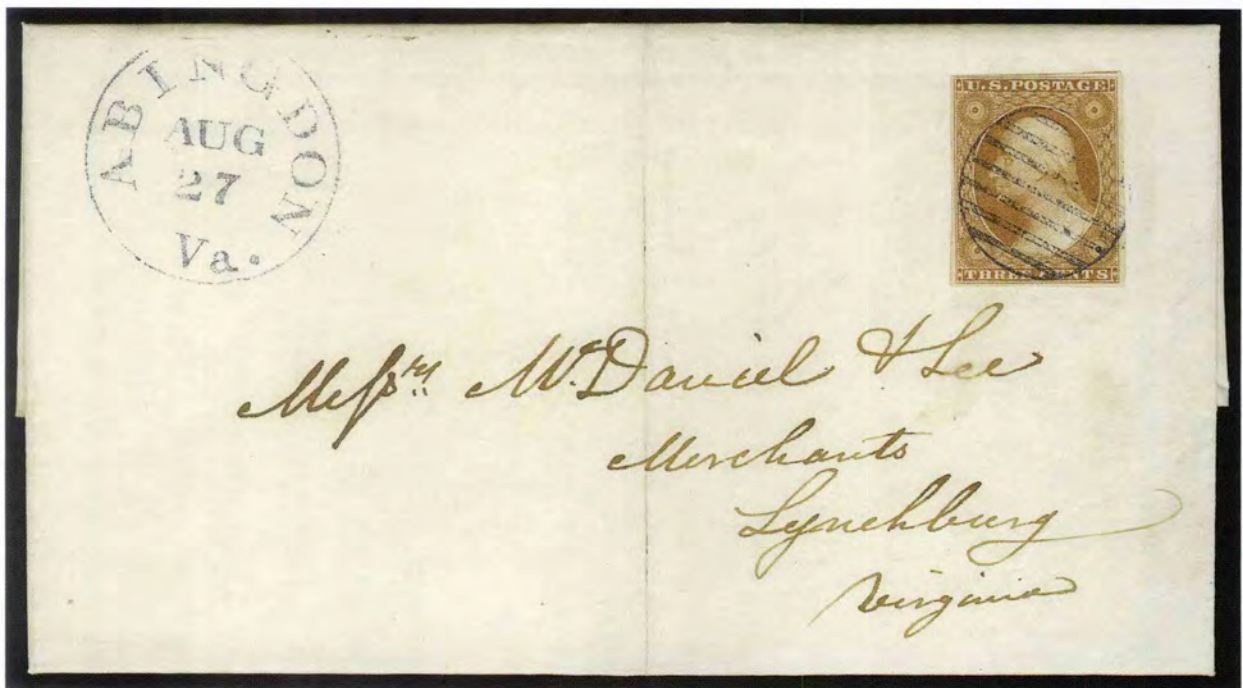 ABINGDON
AUG
27
Va.
U.S. POSTAGE
THREE CENTS
Messrs. McDaniel & Lee
Merchants
Lynchburg
Virginia